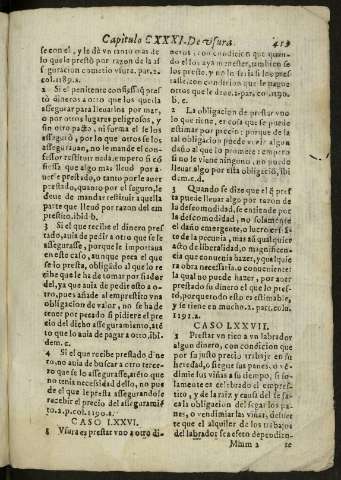 Capitulo CXXXI. De vsura.
se con el, y le dè vn tanto mas de
lo que le prestò por razon de la as
seguracion cometio vsura. par. 2.
col. 1189. a.
2 Si el penitente confiessa q̃ pres
tò dineros a otro que los queda
assegurasse para lleuarlos por mar,
o por otros lugares peligrosos, y
sin otro pacto, ni forma el se los
assegurò, por lo que otros se los
asseguraran, no le mande el con-
fessor restituir nada, empero si cõ
fiessa que algo mas lleuò por a-
uer prestado, o tanto por le auer
prestado, quanto por el seguro, le
deue de mandar restituir aquella
parte que lleuò por razon del em
prestito, ibid. b.
3 Si el que recibe el dinero pres
tado, auia de pedir a otro que se lo
assegurasse, porque le importaua
en este caso, aunque peca el que
se lo presta, obligãdo al que lo re
cibe que le ha de tomar por fiador
del, ya que auia de pedir esto a o-
tro, pues añade al emprestito vna
obligacion de valor, no se ha de
tener por pecado si pidiere el pre
cio del dicho asseguramiento, atẽ
to que lo auia de pagar a otro, ibi.
dem. c.
4 Si el que recibe prestado dine
ro, no auia de buscar a otro terce-
ro que se lo assegurasse, atẽto que
no tenia necessidad dello, no pue
de el que le presta assegurandole
recebir el precio del assegurami-
to. 2. p. col. 1190. a.
CASO LXXVI.
1 Vsura es prestar vno a otro di-
neros, con condicion que quan-
do el los aya menester, tambien se
los preste, y no lo seria si los pres-
tasse, con condicion que le pague
otros dineros que le deue. 2. par. col. 1190.
b. c.
2 La obligacion de prestar vno
lo que tiene, es cosa que se puede
estimar por precio: porque de la
tal obligacion puede venir algun
daño al que lo promete: empero
si no le viene ninguno, no puede
lleuar algo por esta obligaciõ, ibi
dem. c. d.
3 Quando se dize que el q̃ pres
ta puede lleuar algo por razon de
la descomodidad, se entiende por
la descomodidad, no solamente
el daño emergente, o lucro cessan
te de la pecunia, mas aũ qualquier
acto de liberalidad, o magnificen-
cia que conuenia hazer, y qualqui
era obra necessaria, o conueniente:
la qual no puede hazer, por auer
prestado su dinero el que lo pres-
tò, porque todo esto es estimable,
y se tiene en mucho. 2. par. col.
1191. a.
CASO LXXVII.
1 Prestar vn rico a vn labrador
algun dinero, con condicion que
por su justo precio trabaje en su
heredad, o segue sus panes, o vẽ-
dimie sus viñas a su tiempo, si so-
lamente es celebrado el empres-
tito, y de la raiz y causa del se sa-
ca la obligacion del segar los pa-
nes, o vendimiar las viñas, de suer
te que el alquiler de los trabajos
del labrador sea esento dependien-
Mmm 2 te